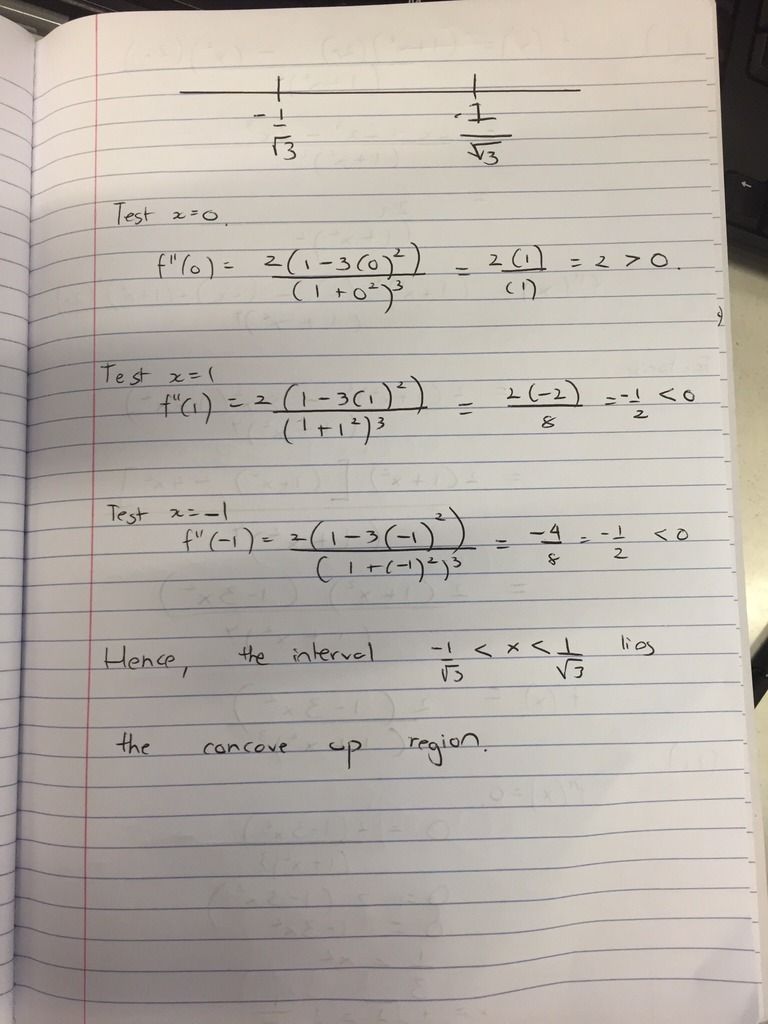 -1/√3 -1/√3
Test x=0.
f"(0) = 2(1-3(0)²)/(1+0²)³ = 2(1)/(1) = 2 > 0.
Test x=1
f"(1) = 2(1-3(1)²)/(1+1²)³ = 2(-2)/8 = -1/2 < 0
Test x=-1
f"(-1) = 2(1-3(-1)²)/(1+(-1)²)³ = -4/8 = -1/2 < 0
Hence, the interval -1/√3 < x < 1/√3 lies
the concove up region.